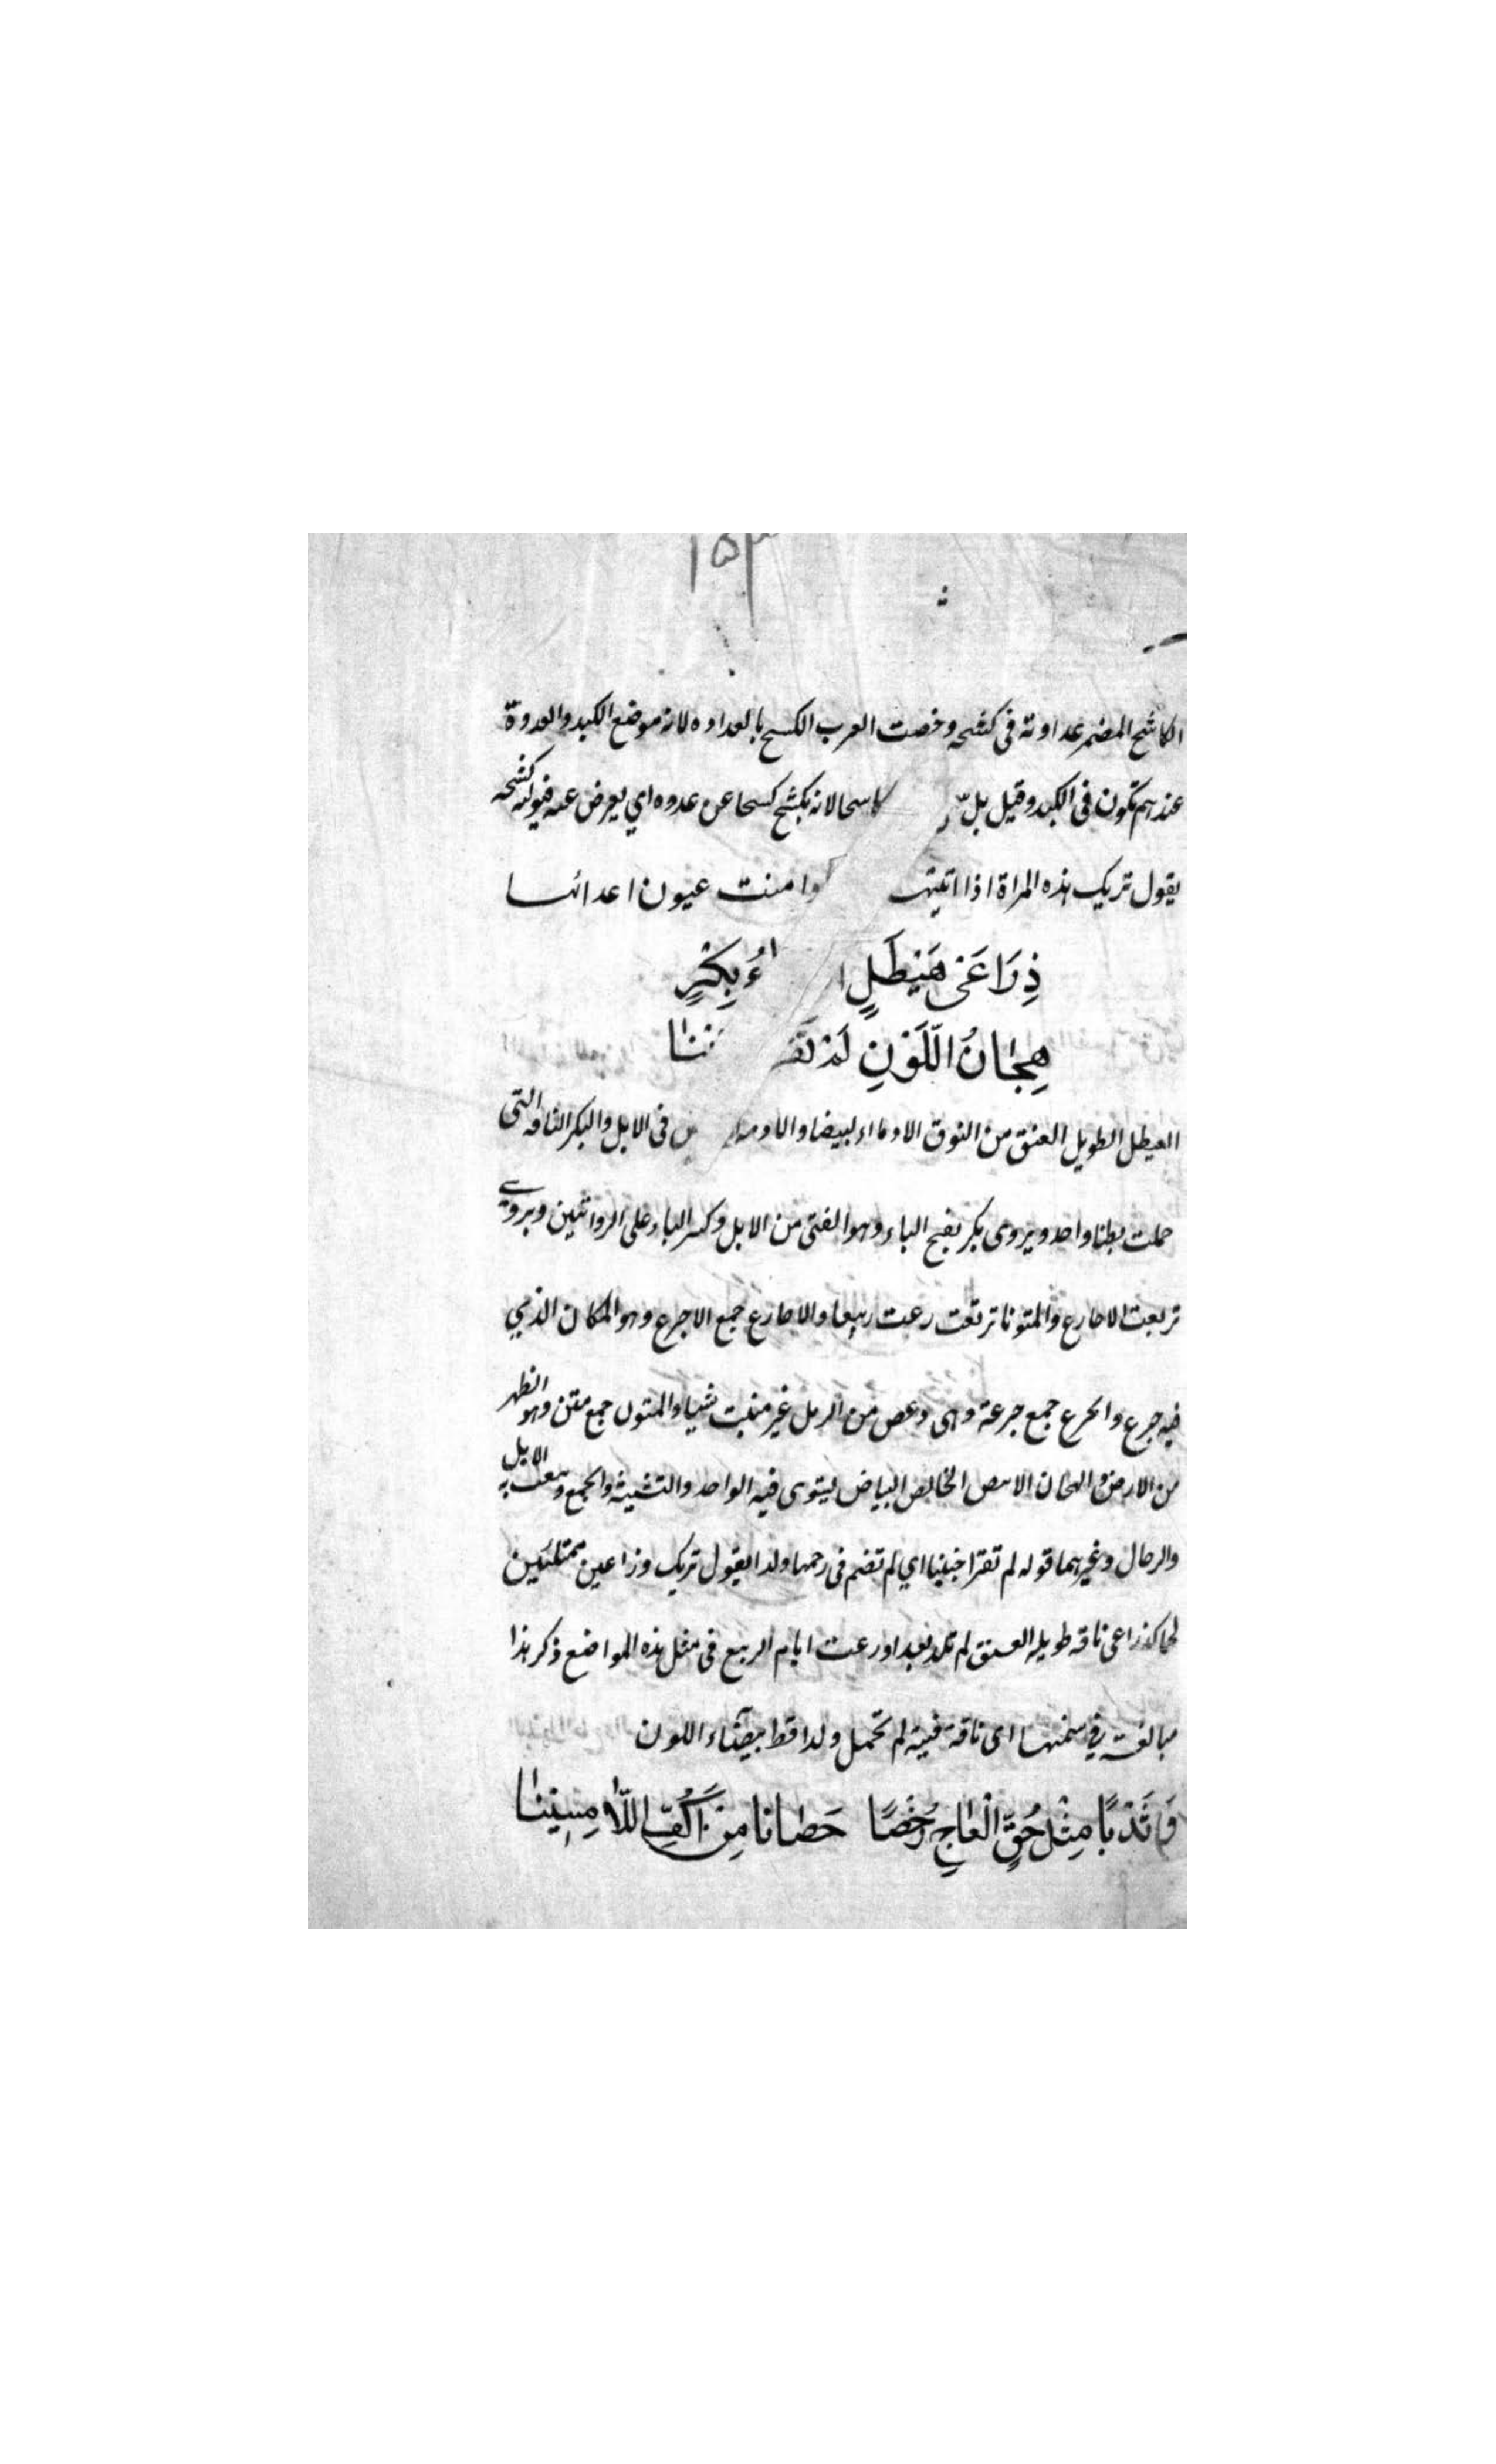 ١٥٣
الكاشح المضمر عداوته فى كشحه وخصت العرب الكسح بالعداوه لانه موضع الكبد والعدوة
عندهم تكون فى الكبد وقيل بل كاسحا لانه يكشح كسحا عن عدوه اي يعرض عنه فيوليه كشحه
يقول تريك هذه المراة اذا اتيتها وامنت عيون اعدائها
ذِرَاعَى عَيْطَلٍ اءُ بِكْرٍ
هِجَانُ اللَّوْنِ لَمْ تقر ننا
العيطل الطويل العنق من النوق الادماء البيضا والادمة فى الابل والبكر الناقه التى
حملت بطنا واحد ويروى بكر بفتح الباء وهو الفتى من الابل وكسر الباء على الروايتين ويروى
تربعت الاحارع والمتونا تربعت رعت ربيعا والاحارع جمع الاجرع وهو المكان الذي
فيه جرع والحرع جمع جرعة وهى دعص من الرمل غير منبت شياء والمتول جمع متن وهو الظهر
من الارض والهجان الابيص الخالص البياض ليتوى فيه الواحد والتثنية والجمع وينعت به الابل
والرحال وغيرهما قوله لم تقرا جنينا اي لم تضم فى رحمها ولدا يقول تريك وزاعين ممتلئين
لحما كذراعى ناقه طويله العنق لم تلد بعد او رعت ايام الربيع فى مثل هذه المواضع ذكر هذا
مبالغة فى سمنها اى ناقة فتية لم تحمل ولدا قط بيضاء اللون
وَثَدْيًا مِثْلَ حُقِّ الْعَاجِ رُخْصًا حَصَانًا مِنْ اَكُفِّ اللَّامِسِينَا